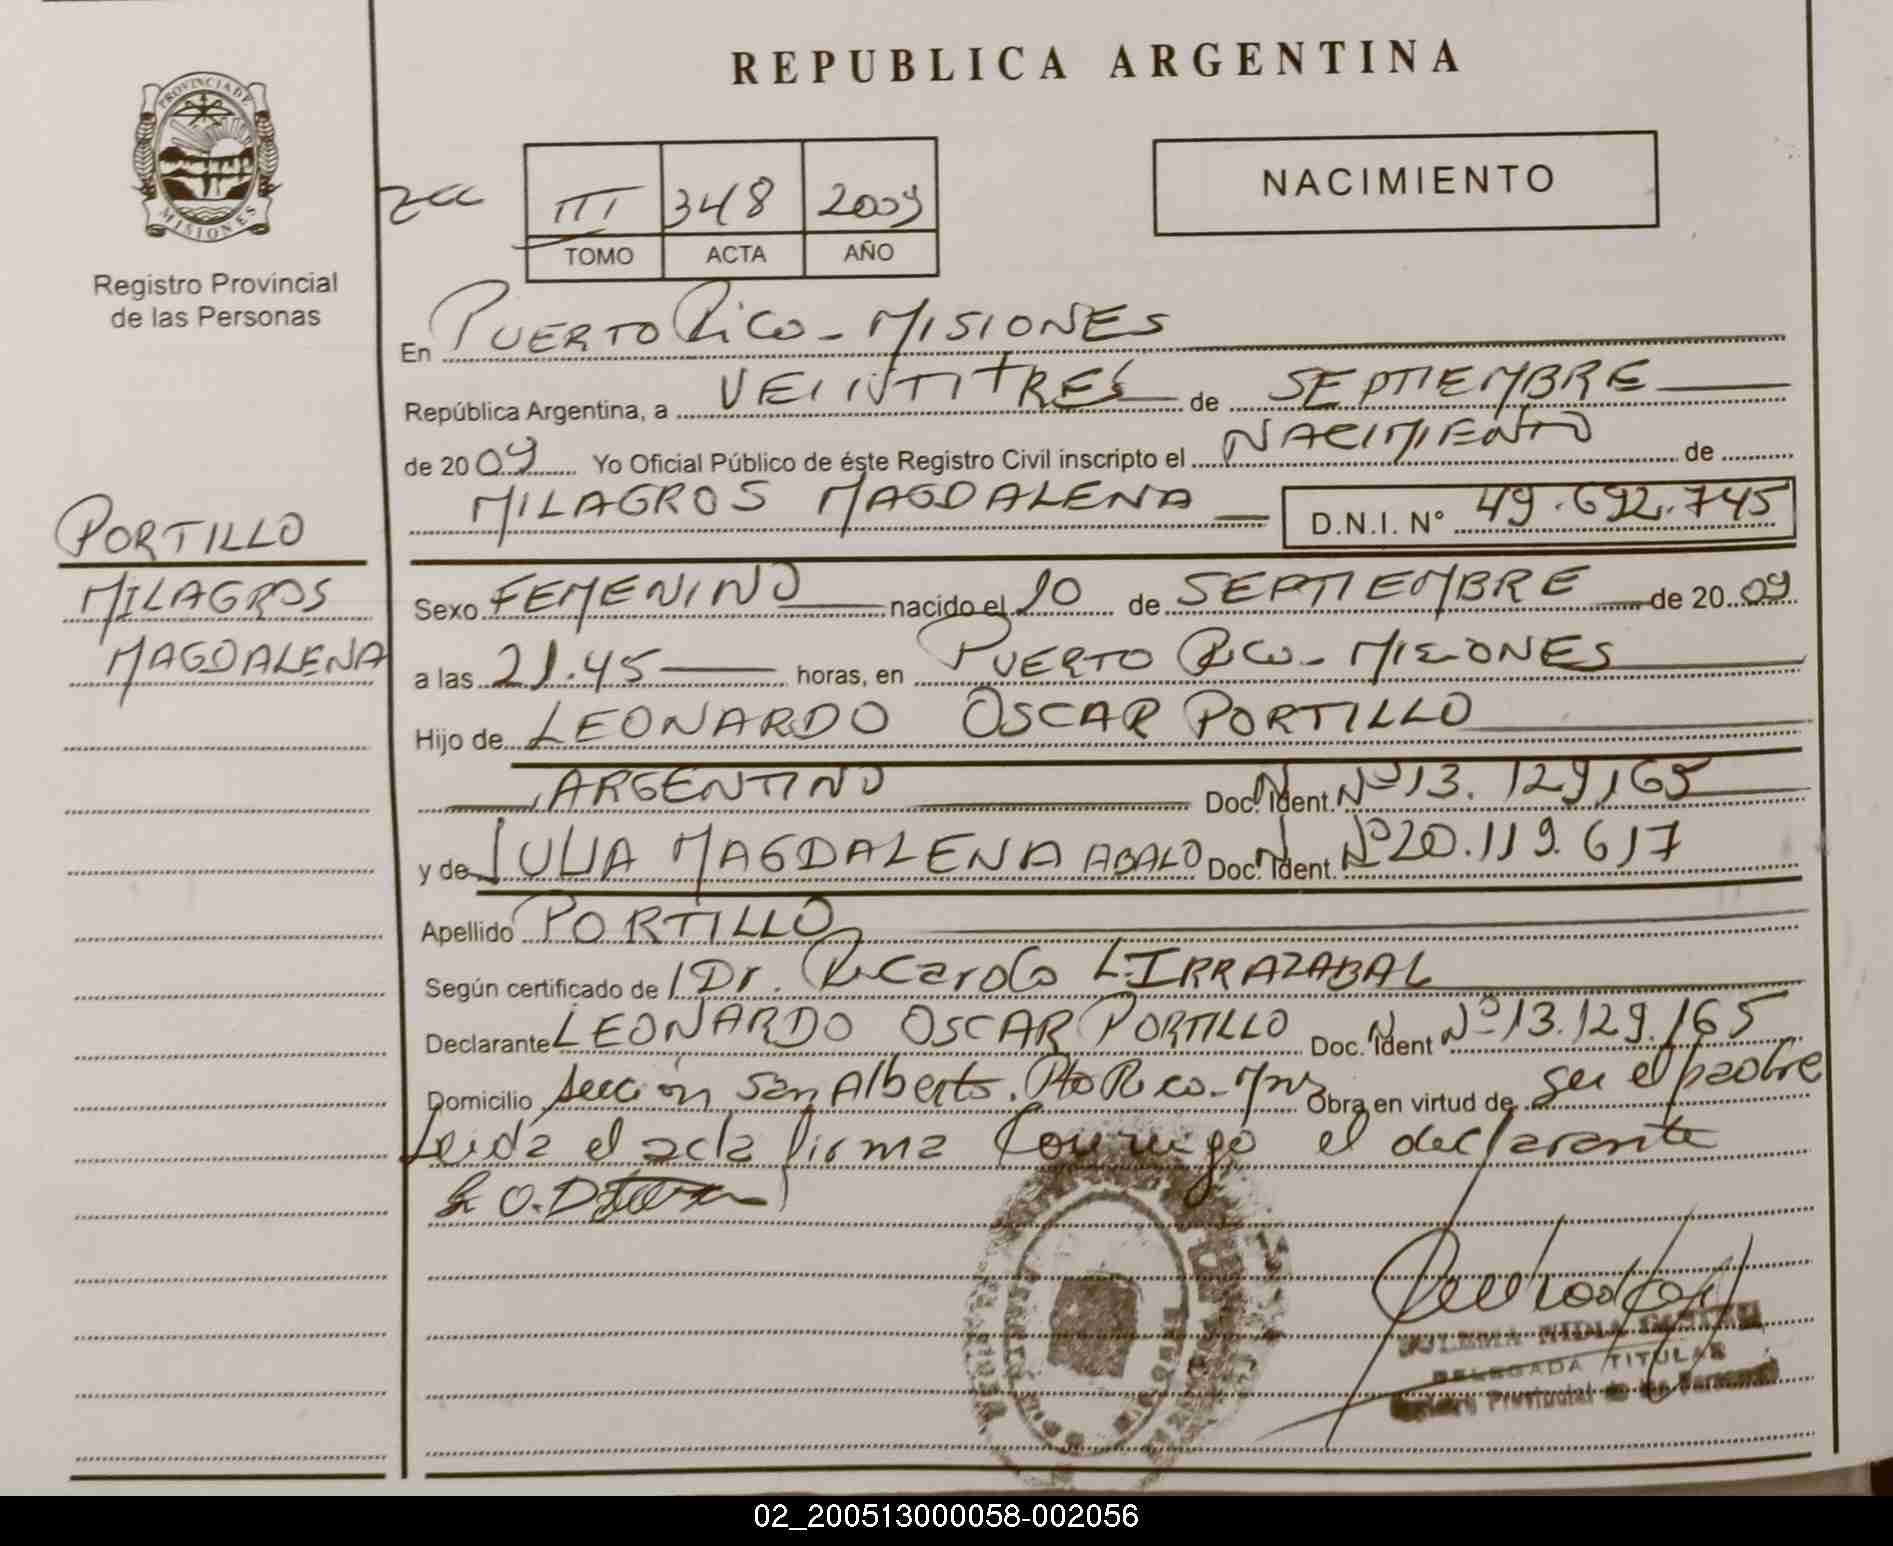 REPUBLICA ARGENTINA
PROVINCIA DE MISIONES
Registro Provincial
de las Personas
III 348 2009
TOMO ACTA AÑO
NACIMIENTO
En PUERTO RICO - MISIONES
República Argentina, a VEINTITRES de SEPTIEMBRE
de 2009 Yo Oficial Público de éste Registro Civil inscripto el NACIMIENTO de
MILAGROS MAGDALENA D.N.I. N° 49.692.745
PORTILLO
MILAGROS
MAGDALENA
Sexo FEMENINO nacido el 20 de SEPTIEMBRE de 2009
a las 21.45 horas, en PUERTO RICO - MISIONES
Hijo de LEONARDO OSCAR PORTILLO
ARGENTINO Doc. Ident. Nº 13.129.165
y de JULIA MAGDALENA ABALO Doc. Ident. Nº 20.119.617
Apellido PORTILLO
Según certificado de Dr. Ricardo L. IRRAZABAL
Declarante LEONARDO OSCAR PORTILLO Doc. Ident Nº 13.129.165
Domicilio sección San Alberto. Pto Rico - Mnes Obra en virtud de ser el padre
Leida el acta firma conmigo el declarante
DELEGADA TITULAR
Registro Provincial de las Personas
02_200513000058-002056